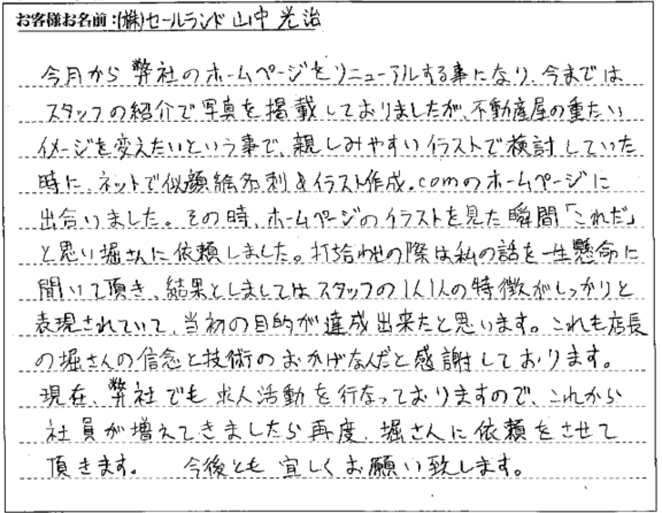 お客様お名前:(株)セールランド 山中 光治
今月から弊社のホームページをリニューアルする事になり、今までは
スタッフの紹介で写真を掲載しておりましたが、不動産屋の重たい
イメージを変えたいという事で、親しみやすいイラストで検討していた
時に、ネットで似顔絵名刺&イラスト作成.comのホームページに
出合いました。その時、ホームページのイラストを見た瞬間「これだ」
と思い堀さんに依頼しました。打ち合わせの際は私の話を一生懸命に
聞いて頂き、結果としましてはスタッフの1人1人の特徴がしっかりと
表現されていて、当初の目的が達成出来たと思います。これも店長
の堀さんの信念と技術のおかげなんだと感謝しております。
現在、弊社でも求人活動を行なっておりますので、これから
社員が増えてきましたら再度、堀さんに依頼をさせて
頂きます。 今後とも宜しくお願い致します。